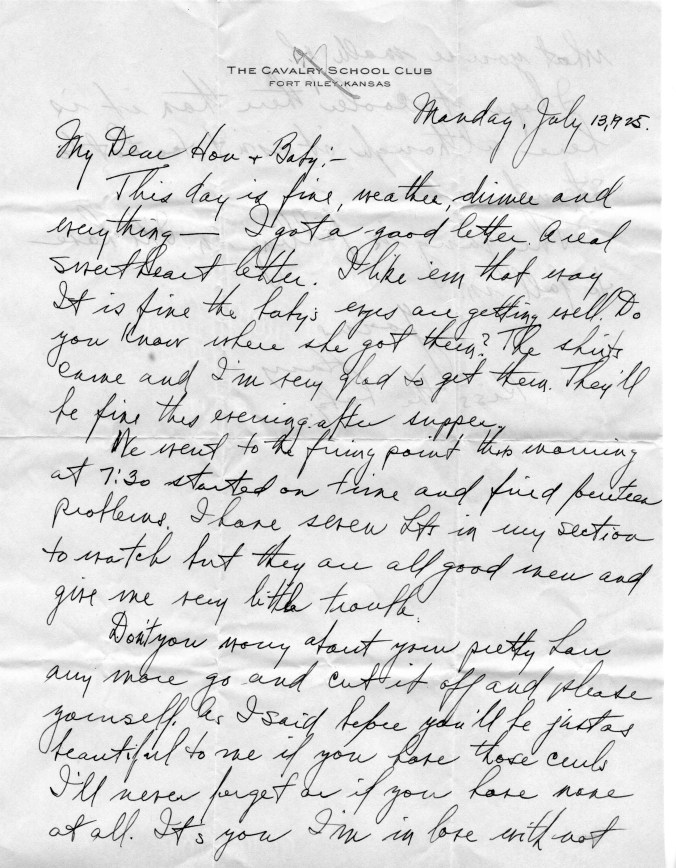 THE CAVALRY SCHOOL CLUB
FORT RILEY, KANSAS
Monday, July 13, 1925.
My Dear Hon & Baby:-
This day is fine, weather, dinner and
everything — I got a good letter. A real
sweetheart letter. I like 'em that way
It is fine the baby's eyes are getting well. Do
you know where she got them? The shirts
came and I'm very glad to get them. They'll
be fine this evening after supper.
We went to the firing point this morning
at 7:30 started on time and fired fourteen
problems. I have seven Lts in my section
to watch but they are all good men and
give me very little trouble.
Don't you worry about your pretty hair
any more go and cut it off and please
yourself. As I said before you'll be just as
beautiful to me if you have those curls
I'll never forget or if you have none
at all. It's you I'm in love with not